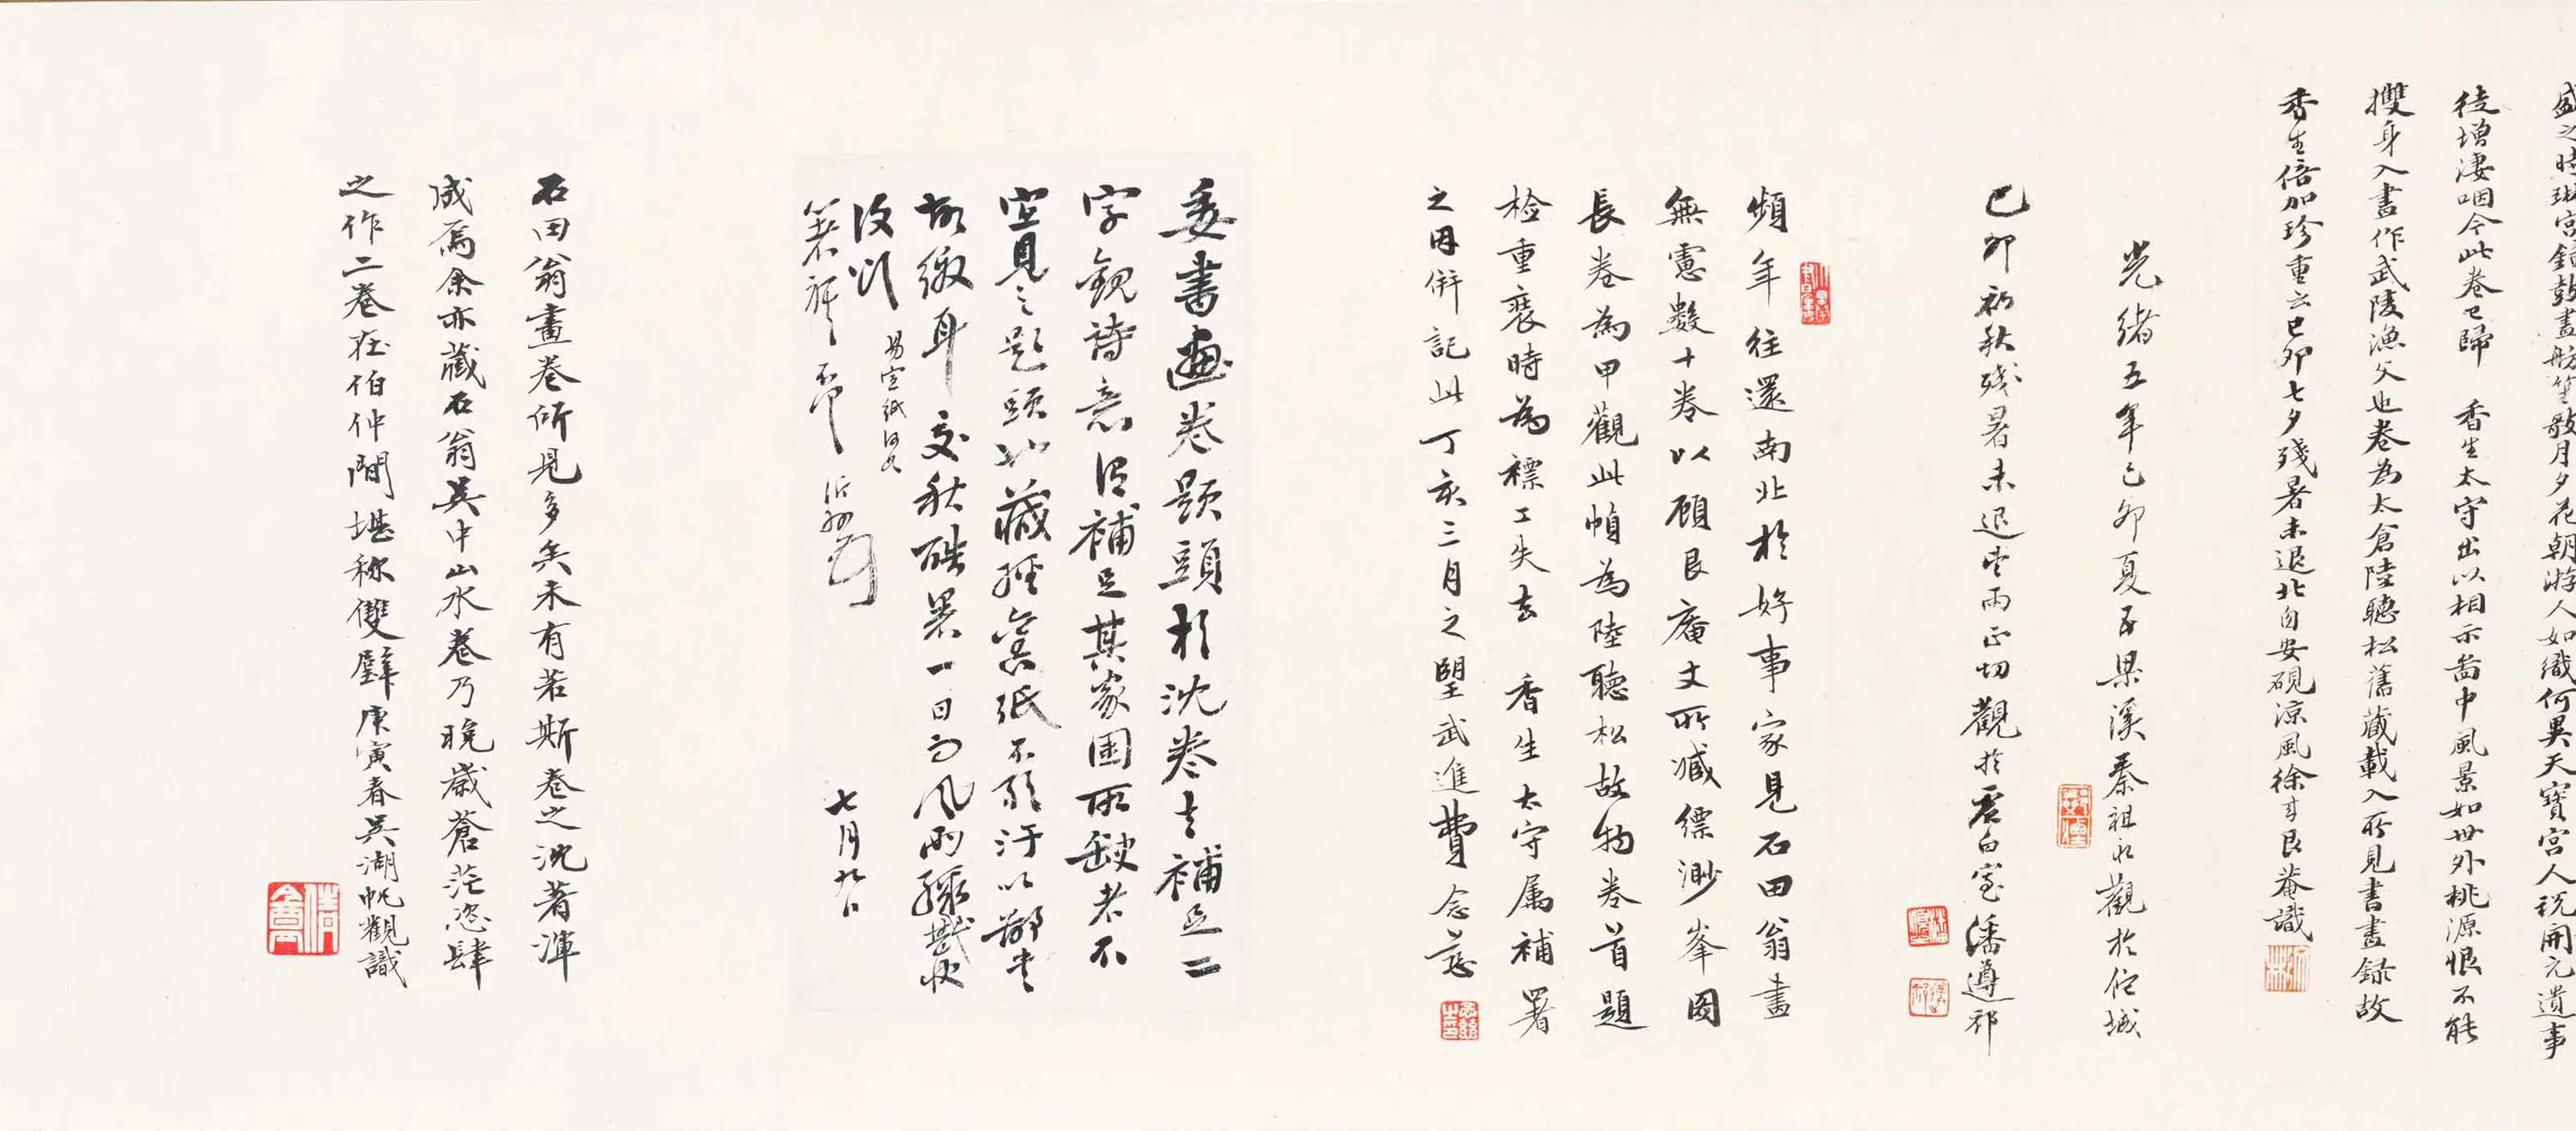 盛之時琳宮鐘鼓畫舫笙歌月夕花朝游人如織何異天寶宮人說開元遺事
徒增淒咽今此卷已歸 香生太守出以相示畫中風景如世外桃源恨不能
搜身入畫作武陵漁父也卷為太倉陸聽松舊藏載入所見書畫錄故
香生倍加珍重云己卯七夕殘暑未退北自安硯涼風徐來艮菴識
光緒五年己卯夏五梁溪秦祖永觀於伍城
己卯初秋殘暑未退 雨正切觀於 白室潘遵祁
頻年往還南北於好事家見石田翁畫
無慮數十卷以顧艮庵丈所藏縹渺峯圖
長卷為甲觀此幀為陸聽松故物卷首題
檢重裝時為褾工失去 香生太守属補署
之因併記此丁亥三月之朢武進費念慈
委書畫卷題頭於沈卷書補足二
字觀詩意但補足其家園所缺者不
空見之題頭北藏經舍紙不敢汙以鄙書
故繳耳交秋酷暑一日而風雨

易宣紙
七月九日
石田翁畫卷所見多矣未有若斯卷之沈著渾
成焉余亦藏石翁吳中山水卷乃晚歲蒼茫恣肆
之作二卷在伯仲間堪称雙璧庚寅春吳湖帆觀識